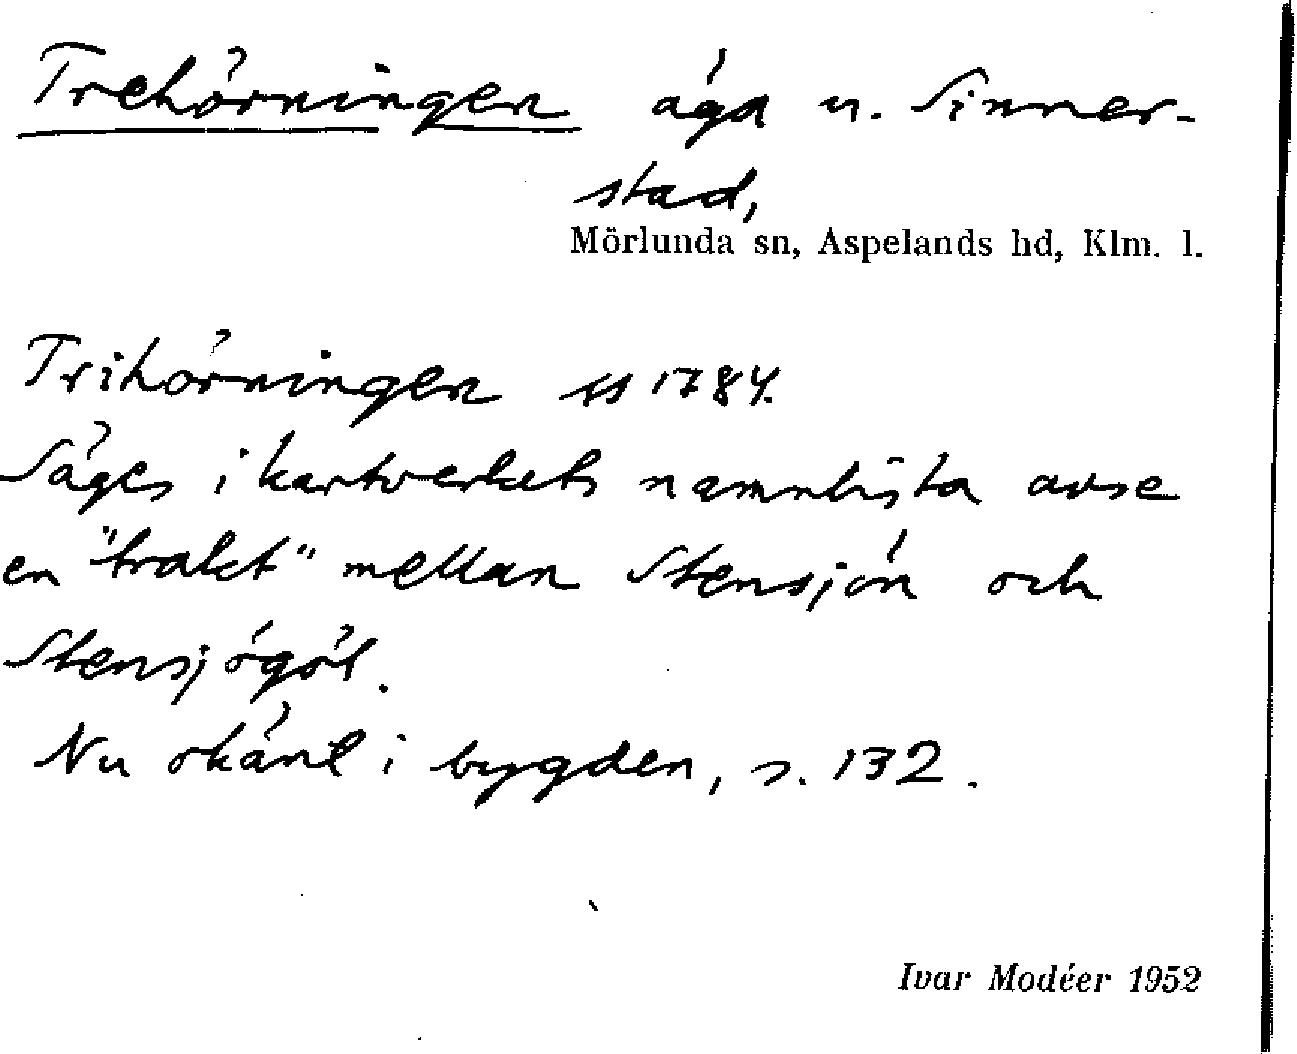 Trehörningen äga u. Sinner-
stad,
Mörlunda sn, Aspelands hd, Klm. l.
Trihörningen ss 1784.
Säges i kartverkets namnlista avse
en "trakt" mellan Stensjön och
Stensjögöl.
Nu okänt i bygden, s. 132.
Ivar Modéer 1952